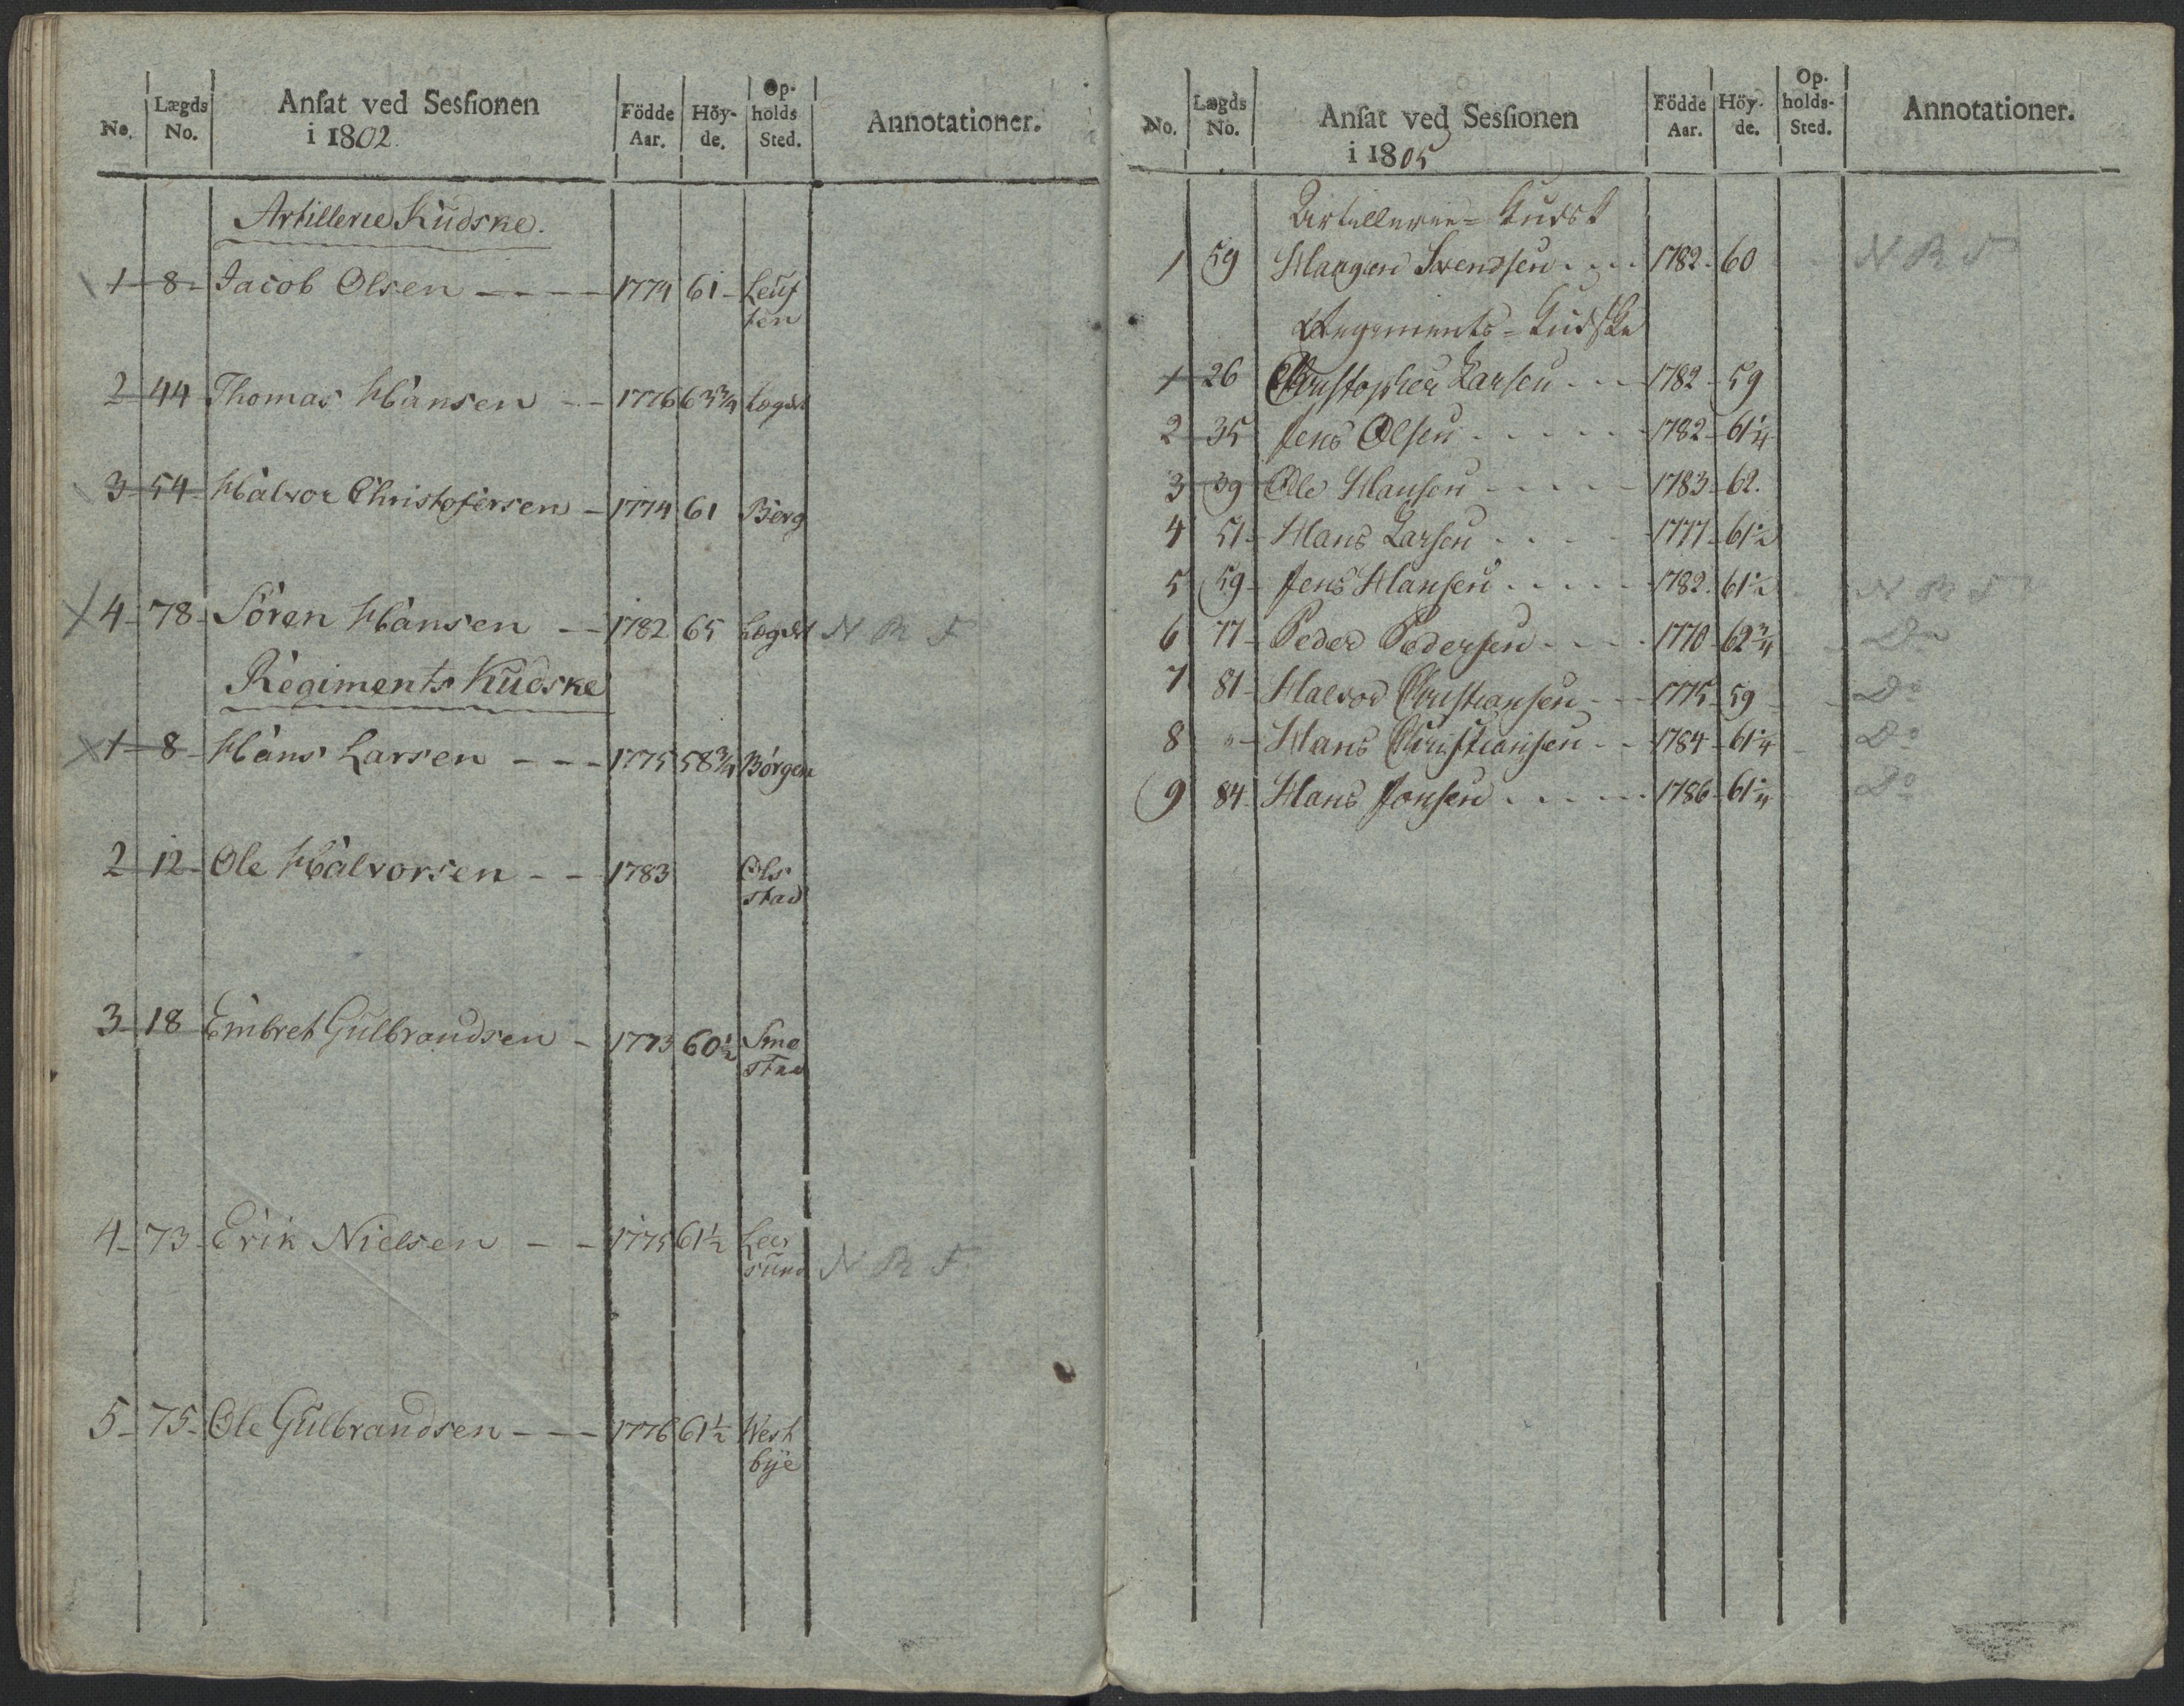 No. Lægds No. Ansat ved Sessionen i 1802. Födde Aar. Höyde. Opholds Sted. Annotationer.
Artillerie Kudske.
1 - 8 - Jacob Olsen - - - - 1774 61 - Leuf
ten
2 - 44 - Thomas Hansen - - 1776 63 3/4 Lægdet
3 - 54 - Halvor Christofersen - 1774 61 Berg
4 - 78 - Sören Hansen - - 1782 65 Lægdet N R F
Regiments Kudske
1 - 8 - Hans Larsen - - - 1775 58 3/4 Börgen
2 - 12 - Ole Halvorsen - - 1783 Ols
stad
3 - 18 Embret Gulbrandsen - 1773 60 1/2 Sme
stad
4 - 73 - Erik Nielsen - - 1775 61 1/2 Leer
sund N R F
5 - 75 - Ole Gulbrandsen - - - 1776 61 1/2 West
bye
No. Lægds No. Ansat ved Sessionen i 1805 Födde Aar. Höyde. Opholds-Sted. Annotationer.
Artillerie = Kudsk
1 59 Haagen Svendsen - - - 1782 - 60 N R F
Regiments = Kudske
1 - 26 Christopher Larsen - - - 1782 - 59
2 - 35 Jens Olsen - - - - - 1782 - 61 1/4
3 - 39 Ole Hansen - - - - 1783 - 62.
4 51 - Hans Larsen - - - - 1777 - 61 1/2
5 59 - Jens Hansen - - - - 1782. 61 1/2 N R F
6 77 - Peder Pedersen - - - 1770 - 62 3/4 Do
7 81 - Halvor Christiansen - - 1775 - 59 - Do
8 " - Hans Christiansen - - 1784 - 61 1/4 - Do
9 84 - Hans Jonsen - - - - - 1786 - 61 1/4 Do